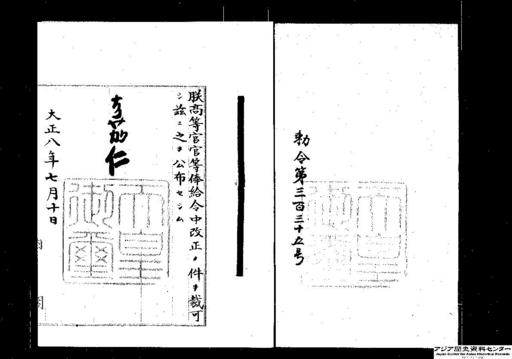 勅令第三百三十五号
朕高等官官等俸給令中改正ノ件ヲ裁可
シ茲ニ之ヲ公布セシム
嘉仁
天皇御璽
大正八年七月十日
アジア歴史資料センター
Japan Center for Asian Historical Records